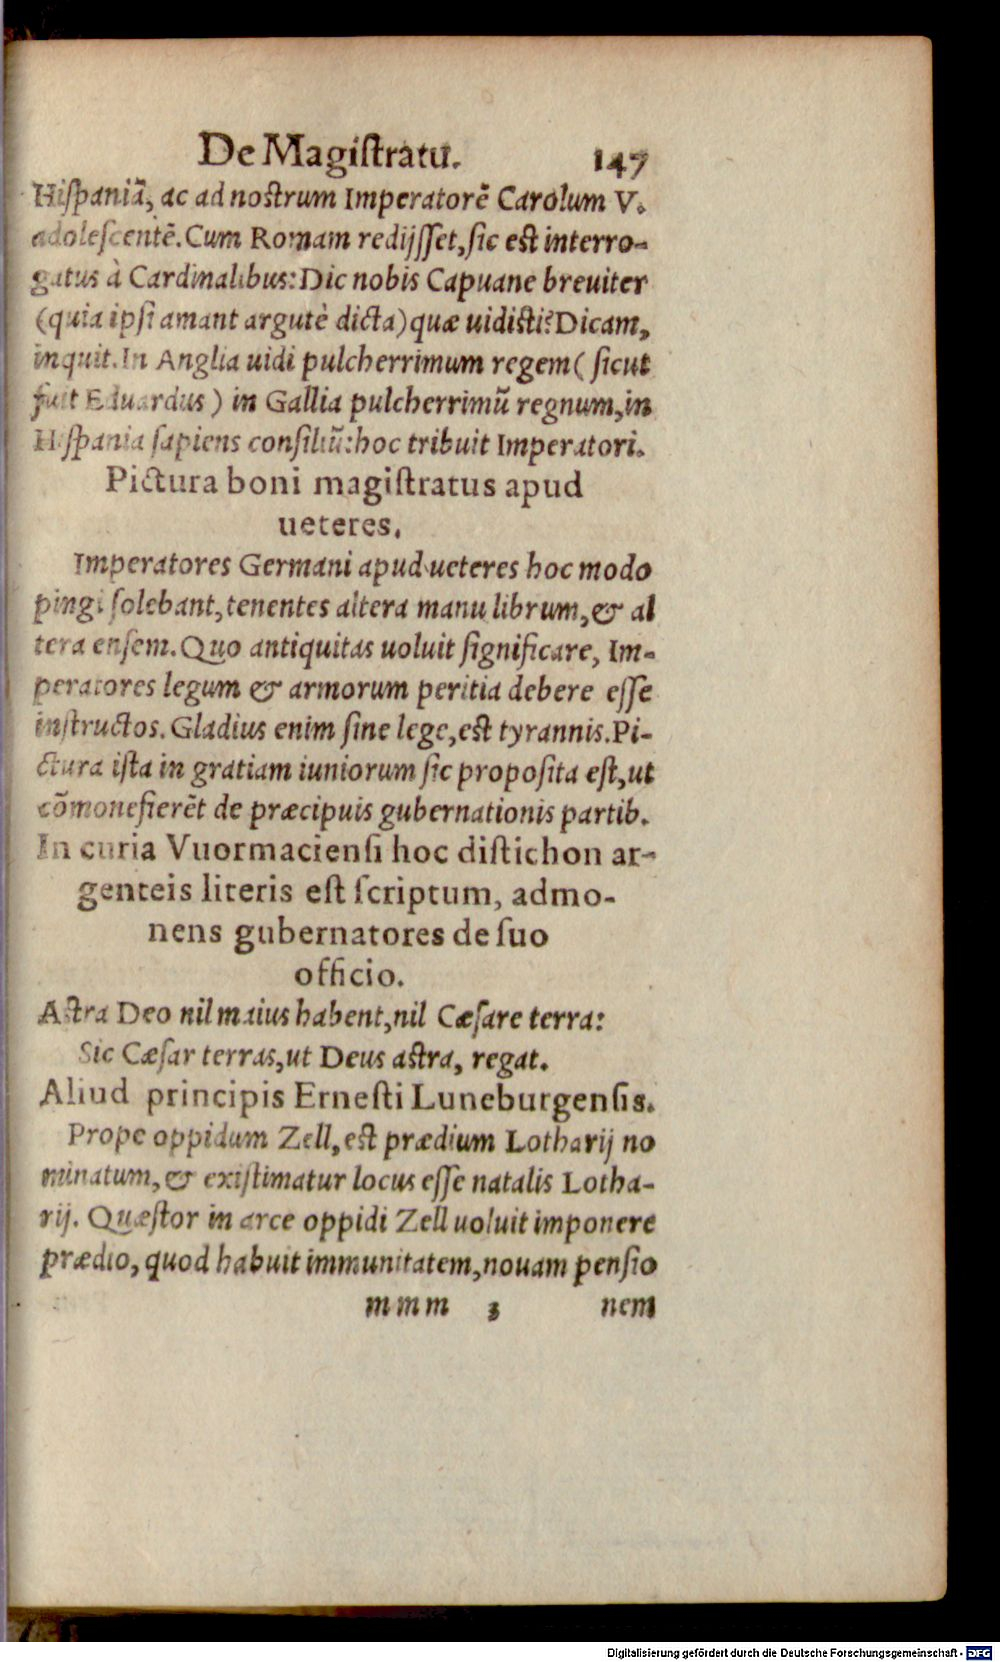 De Magiſtratu. 147
Hiſpaniã, ac ad nostrum Imperatorẽ Carolum V.
adoleſcentẽ. Cum Romam redijſſet, ſic est interro-
gatus à Cardinalibus: Dic nobis Capuane breuiter
(quia ipſi amant argutè dicta) quæ uidisti? Dicam,
inquit. In Anglia uidi pulcherrimum regem (ſicut
fuit Eduardus) in Gallia pulcherrimũ regnum, in
Hiſpania ſapiens conſiliũ: hoc tribuit Imperatori.
Pictura boni magiſtratus apud
ueteres.
Imperatores Germani apud ueteres hoc modo
pingi ſolebant, tenentes altera manu librum, & al
tera enſem. Quo antiquitas uoluit ſignificare, Im-
peratores legum & armorum peritia debere eſſe
inſtructos. Gladius enim ſine lege, est tyrannis. Pi-
ctura iſta in gratiam iuniorum ſic propoſita eſt, ut
cõmonefierẽt de præcipuis gubernationis partib.
In curia Vuormacienſi hoc diſtichon ar-
genteis literis eſt ſcriptum, admo-
nens gubernatores de ſuo
officio.
Astra Deo nil maius habent, nil Cæſare terra:
Sic Cæſar terras, ut Deus astra, regat.
Aliud principis Erneſti Luneburgenſis.
Prope oppidum Zell, est prædium Lotharij no
minatum, & exiſtimatur locus eſſe natalis Lotha-
rij. Quæſtor in arce oppidi Zell uoluit imponere
prædio, quod habuit immunitatem, nouam penſio
mmm 3 nem
Digitalisierung gefördert durch die Deutsche Forschungsgemeinschaft - DFG